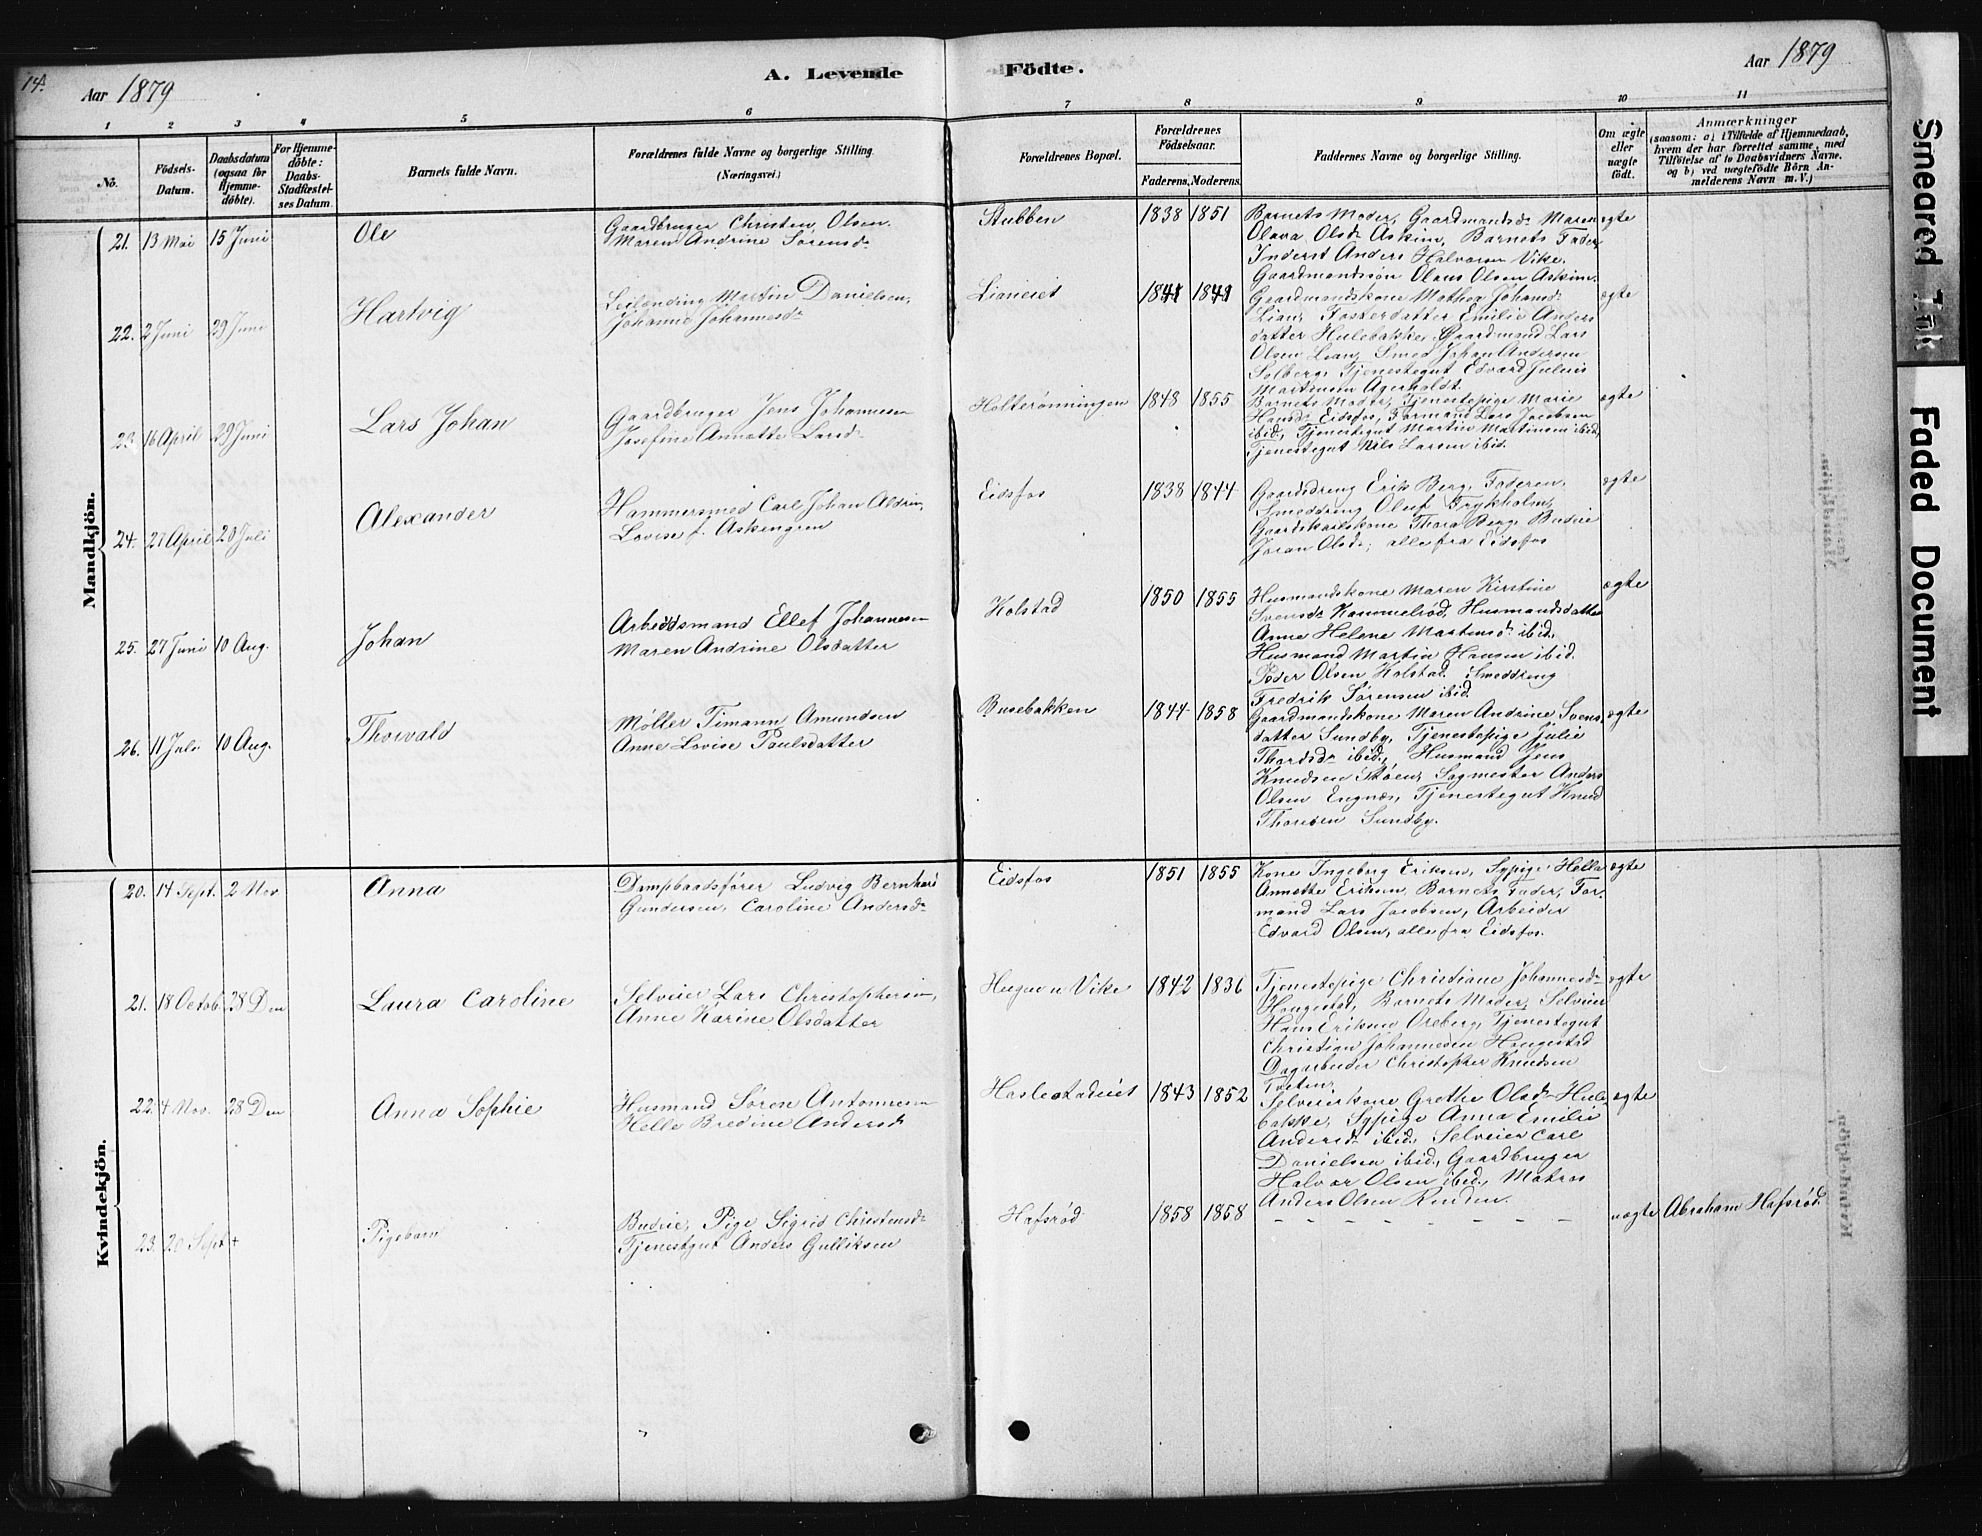 14.
Aar 1879
A. Levende
Födte.
Aar 1879
1 2 3 4 5 6 7 8 9 10 11
No.
Födsels-
Datum.
Daabsdatum
(ogsaa för
Hjemme-
döbte).
For Hjemme-
döbte:
Daabs-
Stadfæstel-
ses Datum.
Barnets fulde Navn.
Forældrenes fulde Navne og borgerlige Stilling
(Næringsvei.)
Forældrenes Bopæl.
Forældrenes
Födselsaar.
Faderens. Moderens.
Faddernes Navne og borgerlige Stilling.
Om ægte
eller
uægte
födt.
Anmærkninger
(saasom: a) i Tilfælde af Hjemmedaab,
hvem der har forrettet samme, med
Tilföielse af to Daabsvidners Navne,
og b) ved uægtefödte Börn An-
melderens Navn m. V.)
Mandkjön.
21. 13 Mai 15 Juni
Ole
Gaardbruger Christen Olsen
Maren Andrine Sørensd.
Stubben
1838 1851
Barnets Moder, Gaardmandsd. Maren
Olava Olsd. Askim, Barnets Fader,
Inderst Anders Halvorsen Vike.
Gaardmandssøn Olaus Olsen Askim.
ægte
22. 2 Juni 29 Juni
Hartvig
Leilænding Martin Danielsen,
Johanne Johannesd.
Lianeiet
1841 1841
Gaardmandskone Mathea Johansd.
Lian, Fosterdatter Emilie Anders
datter Hulebakke, Gaardmand Lars
Olsen Lian, Smed Johan Andersen
Solberg, Tjenestegut Edvard Julius
Martinsen Agerholdt.
ægte
23. 16 April 29 Juni
Lars Johan
Gaardbruger Jens Johannesen
Josefine Annette Larsd.
Holterønningen
1848 1855
Barnets Moder, Tjenestepige Marie
Hansd. Eidsfos, Formand Lars Jacobsen
ibid., Tjenestegut Martin Martinsen ibid,
Tjenestegut Nils Larsen ibid.
ægte
24. 27 April 20 Juli
Alexander
Hammersmed Carl Johan Aldrin,
Lovise f. Askengren
Eidsfos
1838 1844
Gaardsdreng Erik Berg, Faderen,
Smeddreng Oluf Frykholm,
Gaardskarlskone Thora Berg, Budeie
Joran Olsd., alle fra Eidsfos
ægte
25. 27 Juni 10 Aug.
Johan
Arbeidsmand Ellef Johannesen
Maren Andrine Olsdatter
Kolstad
1850 1855
Husmandskone Maren Kirstine
Svensd. Kammelrød, Husmandsdatter
Anne Helene Martensd. ibid,
Husmand Martin Hansen ibid.
Peder Olsen Kolstad, Smeddreng
Fredrik Sørensen ibid.
ægte
26. 11 Juli 10 Aug.
Thorvald
Møller Timann Amundsen
Anne Lovise Paulsdatter
Busebakken
1844 1858
Gaardmandskone Maren Andrine Svens
datter Sundby, Tjenestepige Julie
Thordsd. ibid., Husmand Jens
Knudsen Støen, Sagmester Anders
Olsen Engnæs, Tjenestegut Knud
Thoresen Sundby.
ægte
Kvindekjön.
20. 14 Sept. 2 Nov
Anna
Dampbaadsfører Ludvig Bernhard
Gundersen, Caroline Andersd.
Eidsfos
1851 1855
Kone Ingeborg Eriksen, Sypige Helle
Annette Eriksen, Barnets Fader, For-
mand Lars Jacobsen, Arbeider
Edvard Olsen, alle fra Eidsfos.
ægte
21. 18 Octob. 28 Den
Laura Caroline
Selveier Lars Christophersen,
Anne Karine Olsdatter
Vike
1842 1836
Tjenestepige Christiane Johannesd.
Haugestad, Barnets Moder, Selveier
Hans Eriksen Oreberg, Tjenestegut
Christian Johannesen Haugestad
Dagarbeider Christopher Knudsen
Toeten.
ægte
22. 4 Nov. 28 Den
Anna Sophie
Husmand Søren Antonnesen
Helle Bredine Andersd
Haslestadeiet
1843 1852
Selveierkone Grethe Olsd. Hule
bakke, Sypige Anna Emilie
Andersd. ibid, Selveier Carl
Danielsen ibid., Gaardbruger
Halvor Olsen ibid., Matros
Anders Olsen Rinden.
ægte
23. 20 Sept +
Pigebarn
Budeie, Pige Sigrid Christensd.
Tjenestgut Anders Gulliksen
Hafsrød
1858 1858
- - - - - - - -
uægte
Abraham Hafsrød.
Smeared Ink
Faded Document